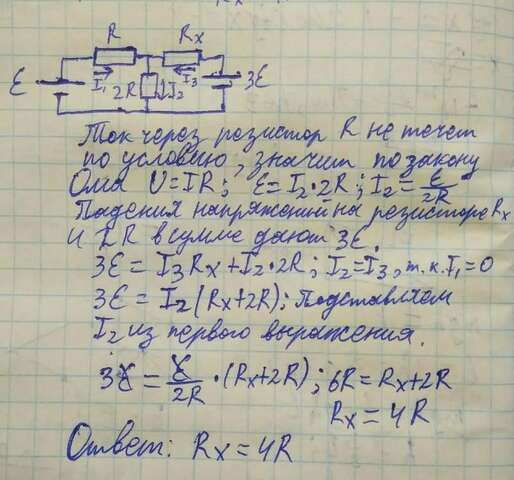 R Rx
ε I₁ 2R I₂ I₃ 3ε
Ток через резистор R не течет
по условию, значит по закону
Ома U=IR; ε=I₂·2R; I₂=ε/2R
Падения напряжений на резисторе Rx
и 2R в сумме дают 3ε.
3ε=I₃Rx+I₂·2R; I₂=I₃, т.к. I₁=0
3ε=I₂(Rx+2R); Подставляем
I₂ из первого выражения.
3ε=ε/2R·(Rx+2R); 6R=Rx+2R
Rx=4R
Ответ: Rx=4R